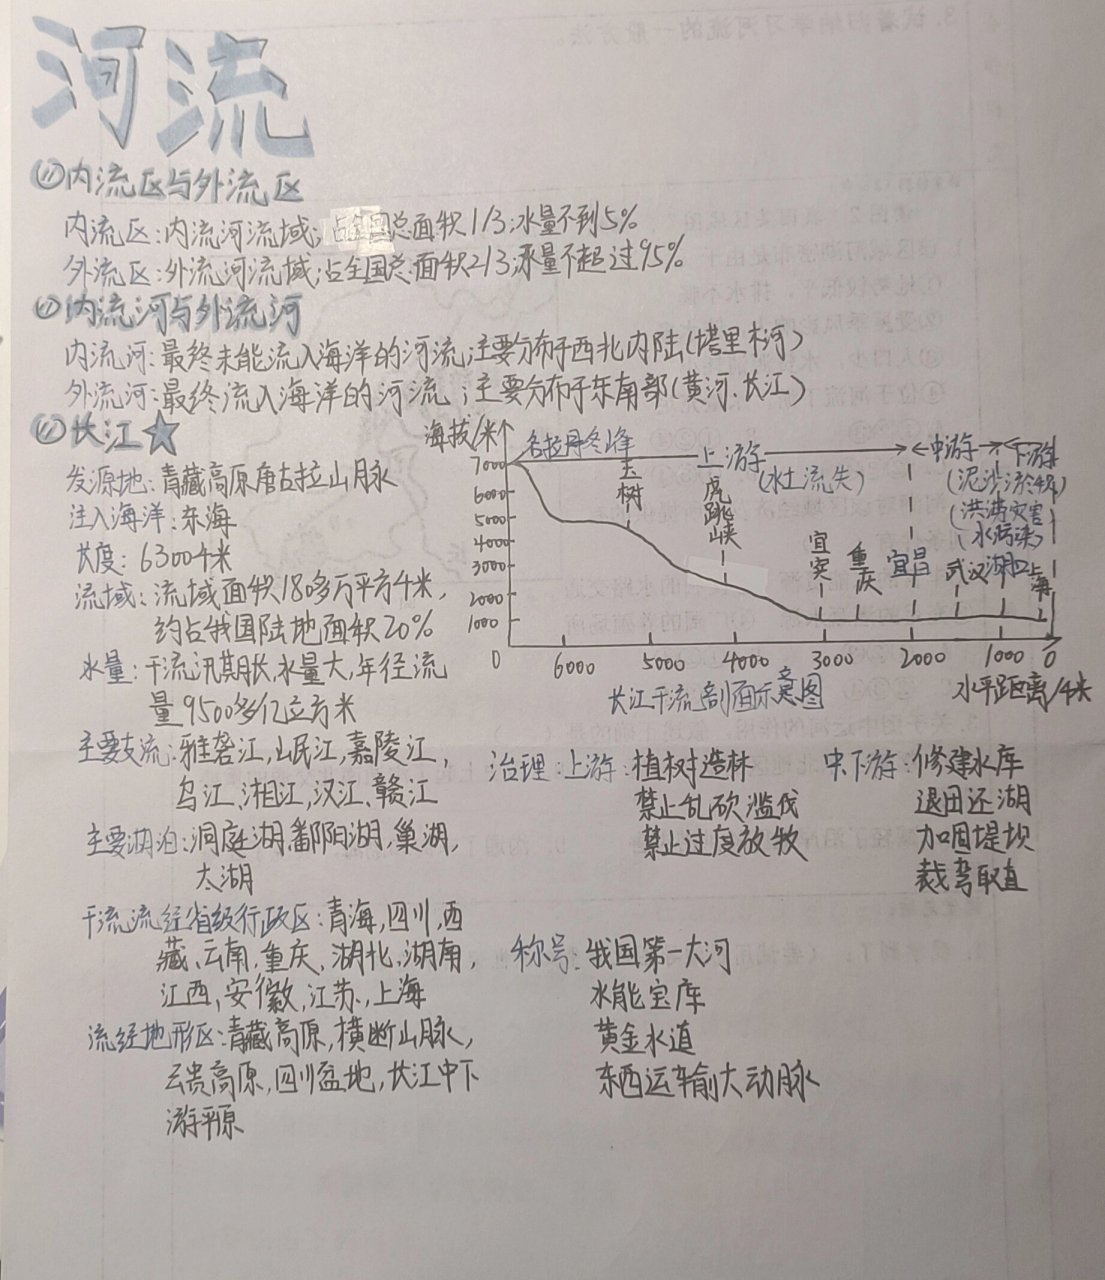 河流
(1)内流区与外流区
内流区:内流河流域;占全国总面积1/3;水量不到5%
外流区:外流河流域;占全国总面积2/3;水量不超过95%
内流河与外流河
内流河:最终未能流入海洋的河流;主要分布于西北内陆(塔里木河)
外流河:最终流入海洋的河流;主要分布于东南部(黄河、长江)
长江
发源地:青藏高原唐古拉山脉
注入海洋:东海
长度:6300千米
流域:流域面积180多万平方千米,
约占我国陆地面积20%
水量:干流汛期长,水量大,年径流
量9500多亿立方米
主要支流:雅砻江,岷江,嘉陵江,
乌江,湘江,汉江、赣江
主要湖泊:洞庭湖,鄱阳湖,巢湖,
太湖
干流流经省级行政区:青海,四川,西
藏、云南,重庆,湖北,湖南,
江西,安徽,江苏,上海
流经地形区:青藏高原,横断山脉,
云贵高原,四川盆地,长江中下
游平原
海拔/米
7000
6000
5000
4000
3000
2000
1000
0
各拉丹冬峰
上游
(水土流失)
中游
下游
(泥沙淤积)
(洪涝灾害
水污染)
玉树
虎跳峡
宜宾
重庆
宜昌
武汉
湖口
上海
6000 5000 4000 3000 2000 1000 0
长江干流剖面示意图
水平距离/千米
治理:上游:植树造林
禁止乱砍滥伐
禁止过度放牧
中下游:修建水库
退田还湖
加固堤坝
裁弯取直
称号:我国第一大河
水能宝库
黄金水道
东西运输大动脉